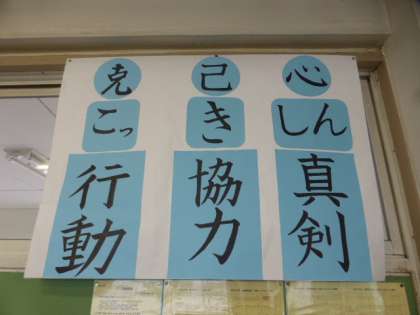 克己心
こっきしん
行動
協力
真剣